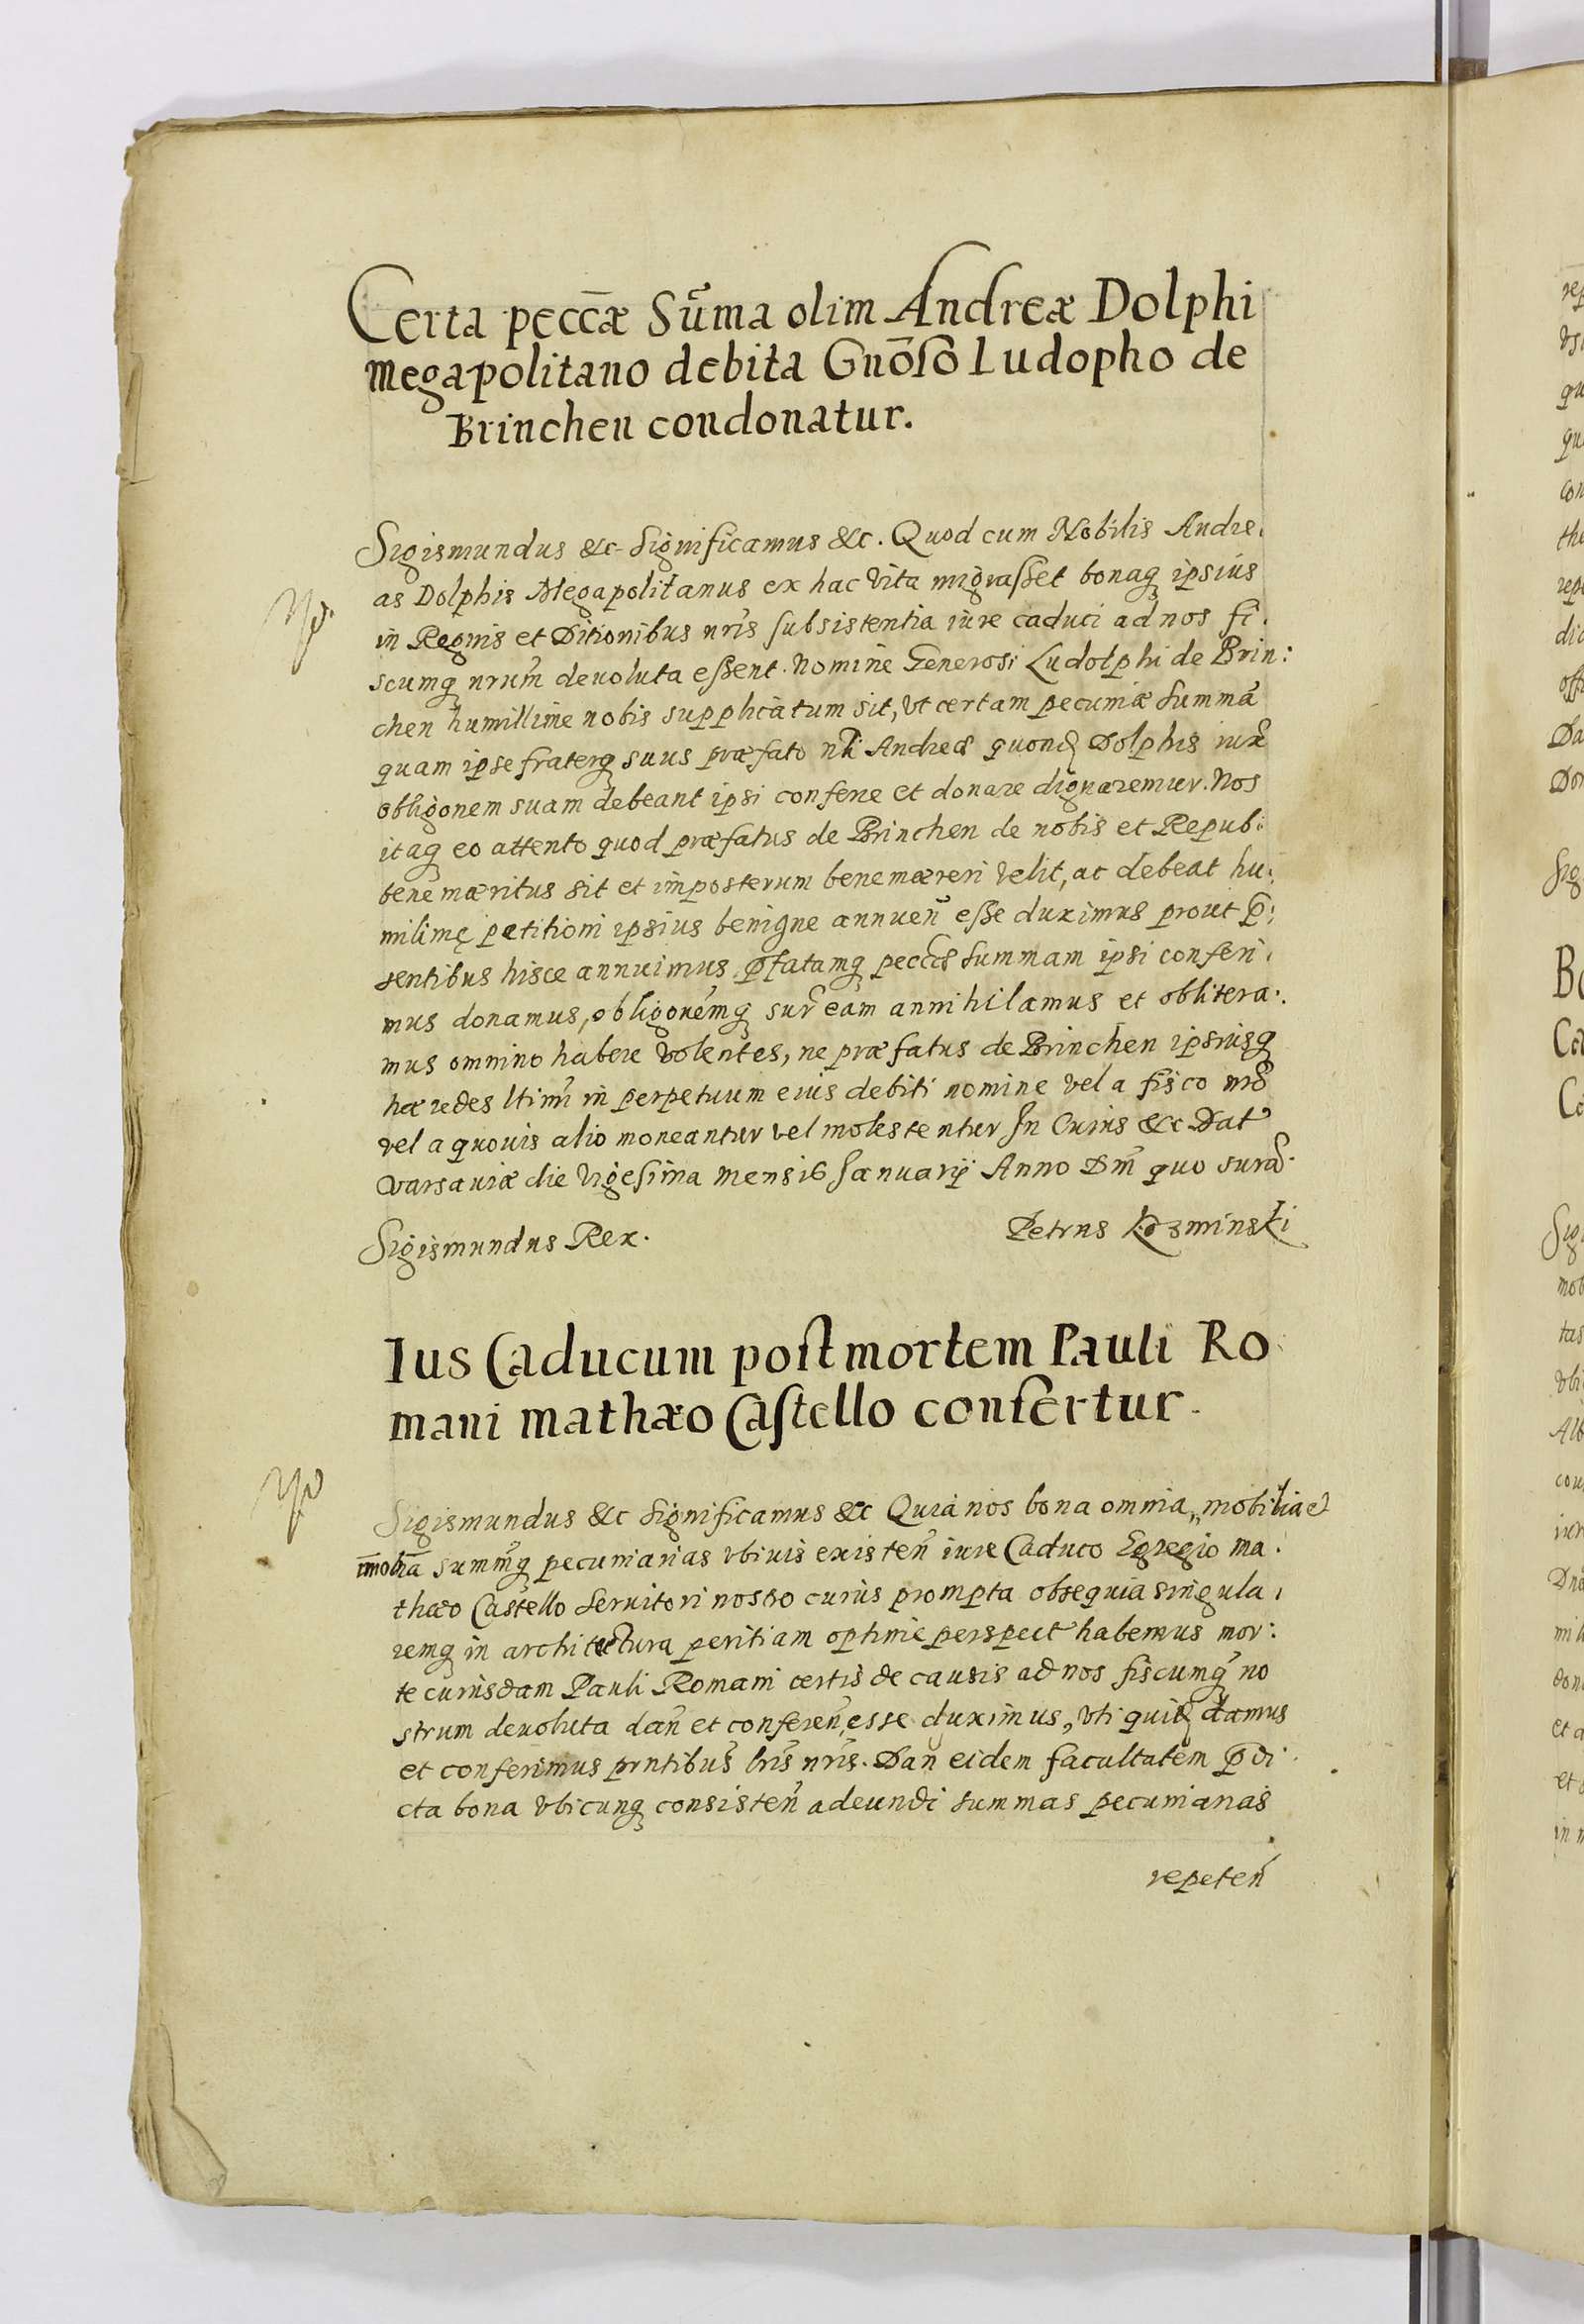 Certa peccæ Sūma olim Andreæ Dolphi
Megapolitano debita Gnōso Ludopho de
Brinchen condonatur.
Sigismundus &c. Significamus &c. Quod cum Nobilis Andre.
as Dolphis Megapolitanus ex hac vita migrasset bonaq ipsius
in Regnis et Ditionibus nris subsistentia iure caduci ad nos fi.
scumq nrum devoluta essent. Nomine Generosi Ludolphi de Brin:
chen humillime nobis supplicatum sit, vt certam pecuniæ summā
quam ipse fraterq suus præfato Andreæ quond Dolphis iux
obligonem suam debeant ipsi conferre et donare dignaremur. Nos
itaq eo attento quod præfatus de Brinchen de nobis et Repub:
bene mæritus sit et imposterum benemæreri velit, ac debeat hu:
milimę petitioni ipsius benigne annuen esse duximus prout p:
sentibus hisce annuimus pfatamq pecces summam ipsi conferi.
mus donamus, obligonemq sur eam annihilamus et oblitera.
mus omnino habere volentes, ne præfatus de Brinchen ipsiusq
hæredes ltimi in perpetuum eius debiti nomine vel a fisco nro
vel a quouis alio moneantur vel molestentur In Cuius &c Dat
Varsauiæ die vigesima mensis Januarij Anno Dm quo supra.
Sigismundus Rex.
Petrus Kozminski
Ius Caducum post mortem Pauli Ro
mani mathæo Castello confertur.
Sigismundus &c Significamus &c Quia nos bona omnia, mobilia et
īmobīa summq pecuniarias vbiuis existen iure Caduco Egregio Ma.
thæo Castello Seruitori nostro cuius prompta obsequia singula.
remq in architectura peritiam optime perspect habemus mor:
te cuiusdam Pauli Romani certis de causis ad nos fiscumq no
strum devoluta dan et conferen esse duximus, vti quid damus
et conferimus prntibus lris nris. Dan eidem facultatem p di
cta bona vbicunq consisten adeundi summas pecuniarias
repeten